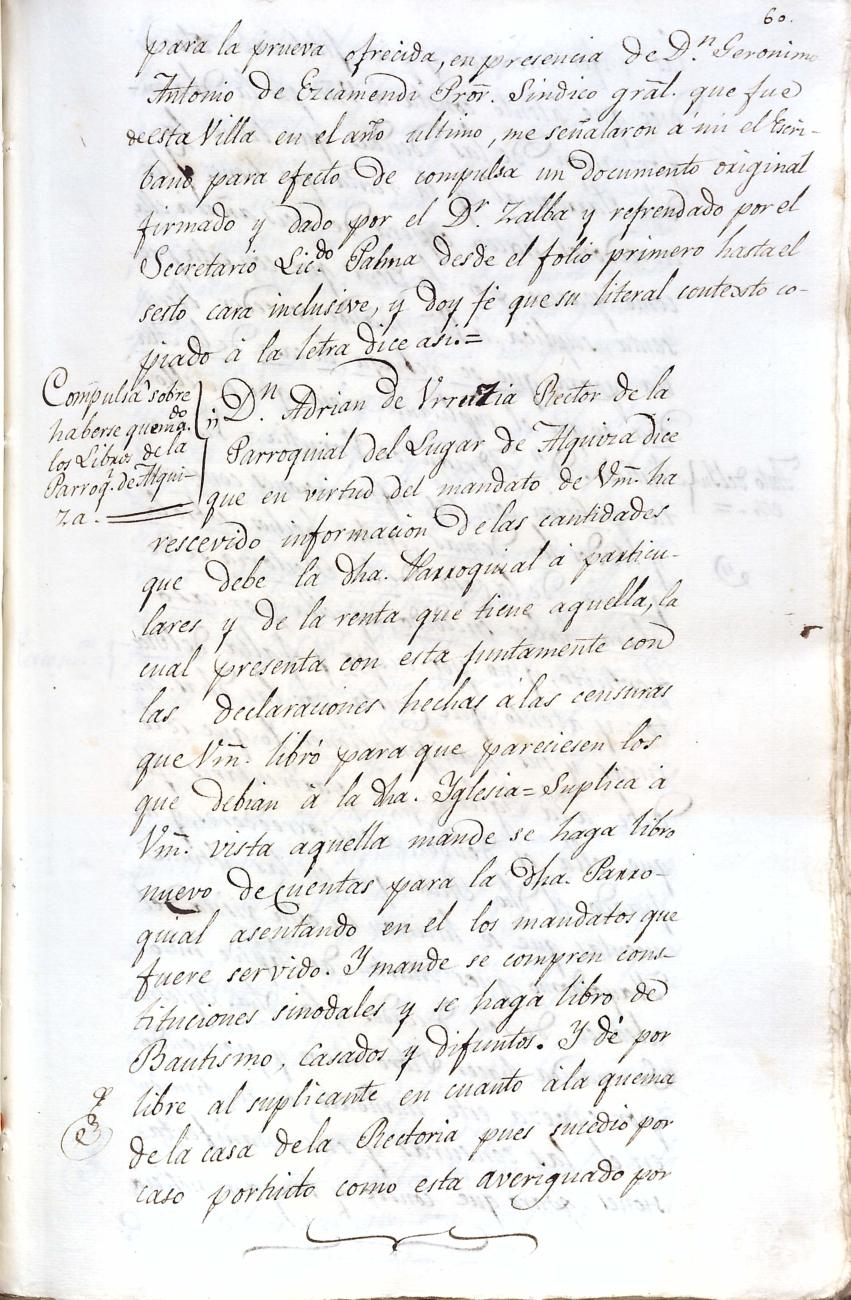 60.
para la prueva ofrecida, en presencia de D.n Geronimo
Antonio de Ezcamendi Pror. Sindico gral. que fue
de esta Villa en el año ultimo, me señalaron á mi el Escri-
bano para efecto de compulsa un documento original
firmado y dado por el D.r Zalba y refrendado por el
Secretario Lic.do Palma desde el folio primero hasta el
sesto cara inclusive, y doy fé que su literal contexto co-
piado á la letra dice asi.=
Compulsa sobre
haberse quema.do
los Libros de la
Parroq.l de Alqui-
za.
D.n Adrian de Vrruzia Rector de la
Parroquial del Lugar de Alquiza dice
que en virtud del mandato de Vm̃. ha
rescevido informacion de las cantidades
que debe la dha. Parroquial á particu-
lares y de la renta que tiene aquella, la
cual presenta con esta juntamente con
las declaraciones hechas á las censuras
que Vm̃. libró para que pareciesen los
que debian á la dha. Yglesia= Suplica á
Vm̃. vista aquella mande se haga libro
nuevo de cuentas para la dha. Parro-
quial asentando en el los mandatos que
fuere servido. Y mande se compren cons-
tituciones sinodales y se haga libro de
Bautismo, Casados y difuntos. Y dé por
libre al suplicante en cuanto á la quema
de la casa de la Rectoria pues sucedió por
caso fortuito como esta averiguado por